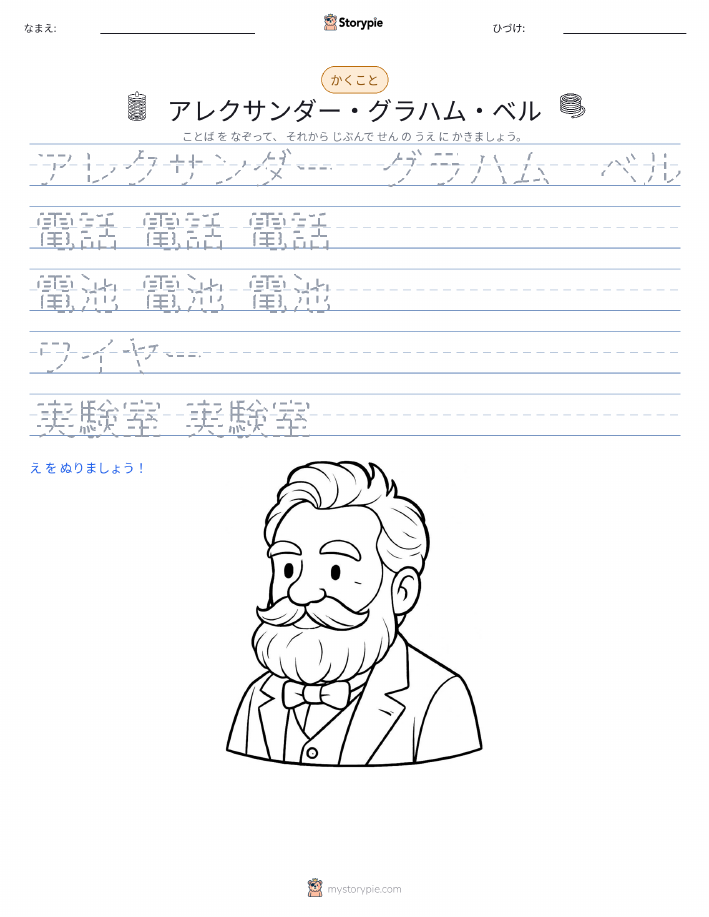 なまえ:
Storypie
ひづけ:
かくこと
アレクサンダー・グラハム・ベル
ことば を なぞって、 それから じぶんで せん の うえ に かきましょう。
アレクサンダー グラハム ベル
電話 電話 電話
電池 電池 電池
ワイヤー
実験室 実験室
え を ぬりましょう！
mystorypie.com